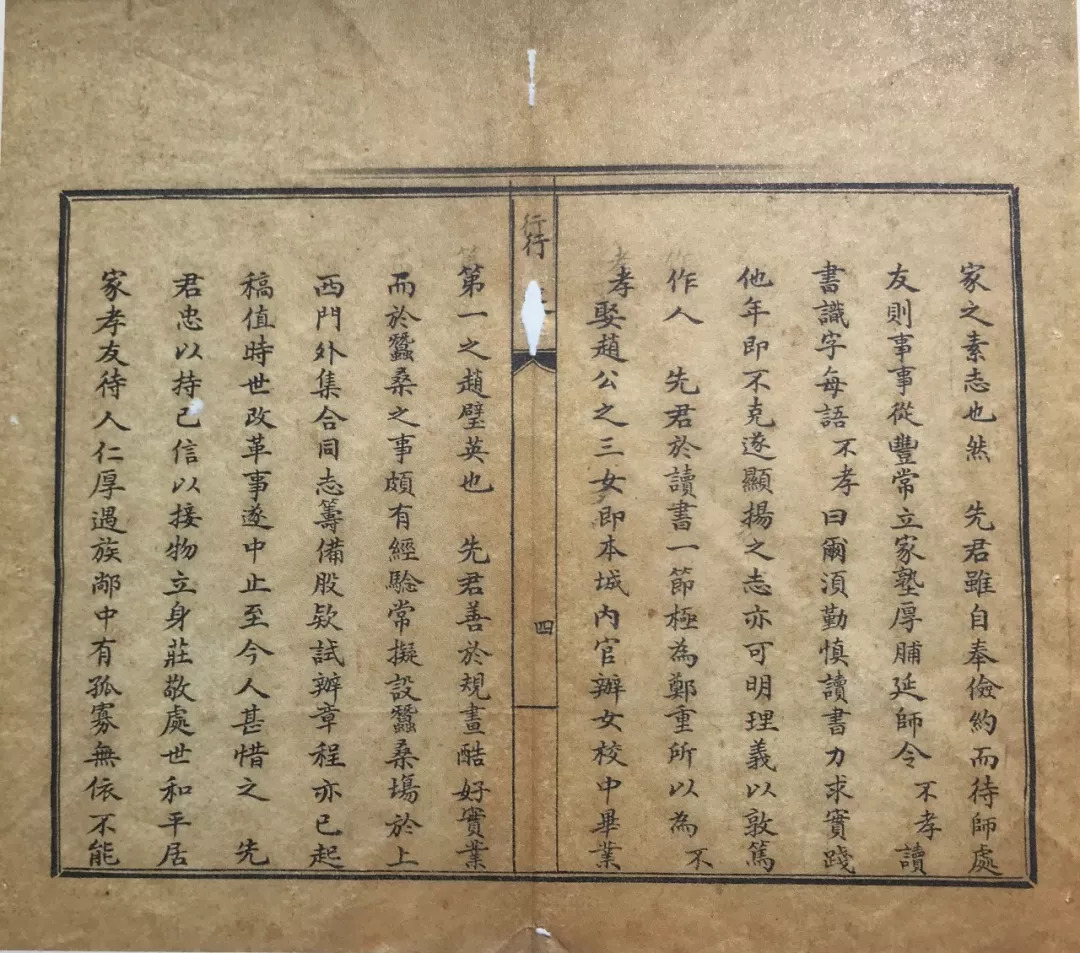 家之素志也然　先君雖自奉儉約而待師處
友則事事從豐常立家塾厚脯延師令不孝讀
書識字每語不孝曰爾須勤慎讀書力求實踐
他年即不克遂顯揚之志亦可明理義以敦篤
作人　先君於讀書一節極為鄭重所以為不
孝娶趙公之三女即本城內官辦女校中畢業
行
四
第一之趙璧英也　先君善於規畫酷好實業
而於蠶桑之事頗有經驗常擬設蠶桑場於上
西門外集合同志籌備股欵試辦章程亦已起
稿值時世改革事遂中止至今人甚惜之　先
君忠以持己信以接物立身莊敬處世和平居
家孝友待人仁厚遇族鄰中有孤寡無依不能